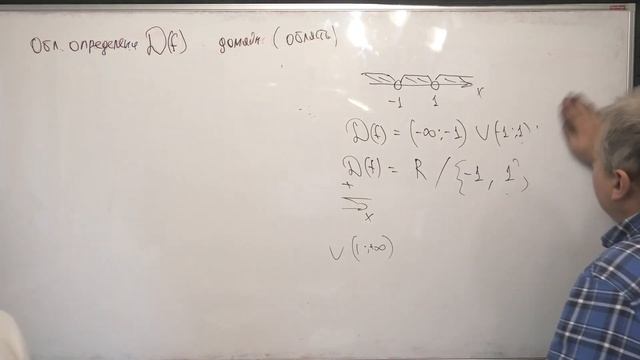 Обл. определения D(f) домен (область)
x
-1 1
D(f) = (-∞; -1) ∪ (-1; 1)
D(f) = R / {-1, 1}
+
x
∪ (1; +∞)